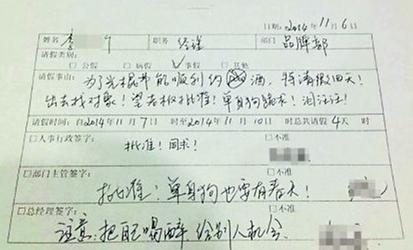 日期:2014年11月6日
姓名 李 职务 经理 部门 品牌部
请假类别:
□公假 □病假 ☑事假 □其他
请假事由: 为了光棍节能顺利约 酒,特请假四天!
出去找对象!望老板批准!单身狗跪求!泪汪汪!
请假时间:自2014年11月7日 时至2014年11月10日 时总共请假4天 时
□人事行政签字: □不准
批准!同求!
□部门主管签字: □不准
批准!单身狗也要有春天!
□总经理签字: □不准
注意:把自己喝醉 给别人机会